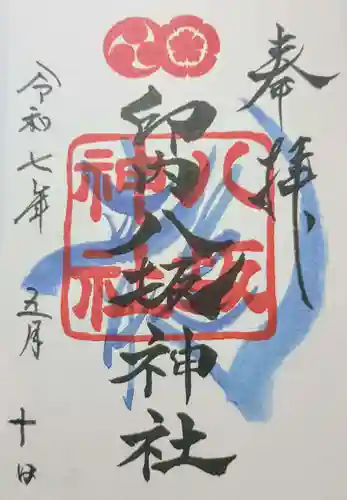 奉拝
八坂
神社
印内八坂神社
令和七年 五月 十日